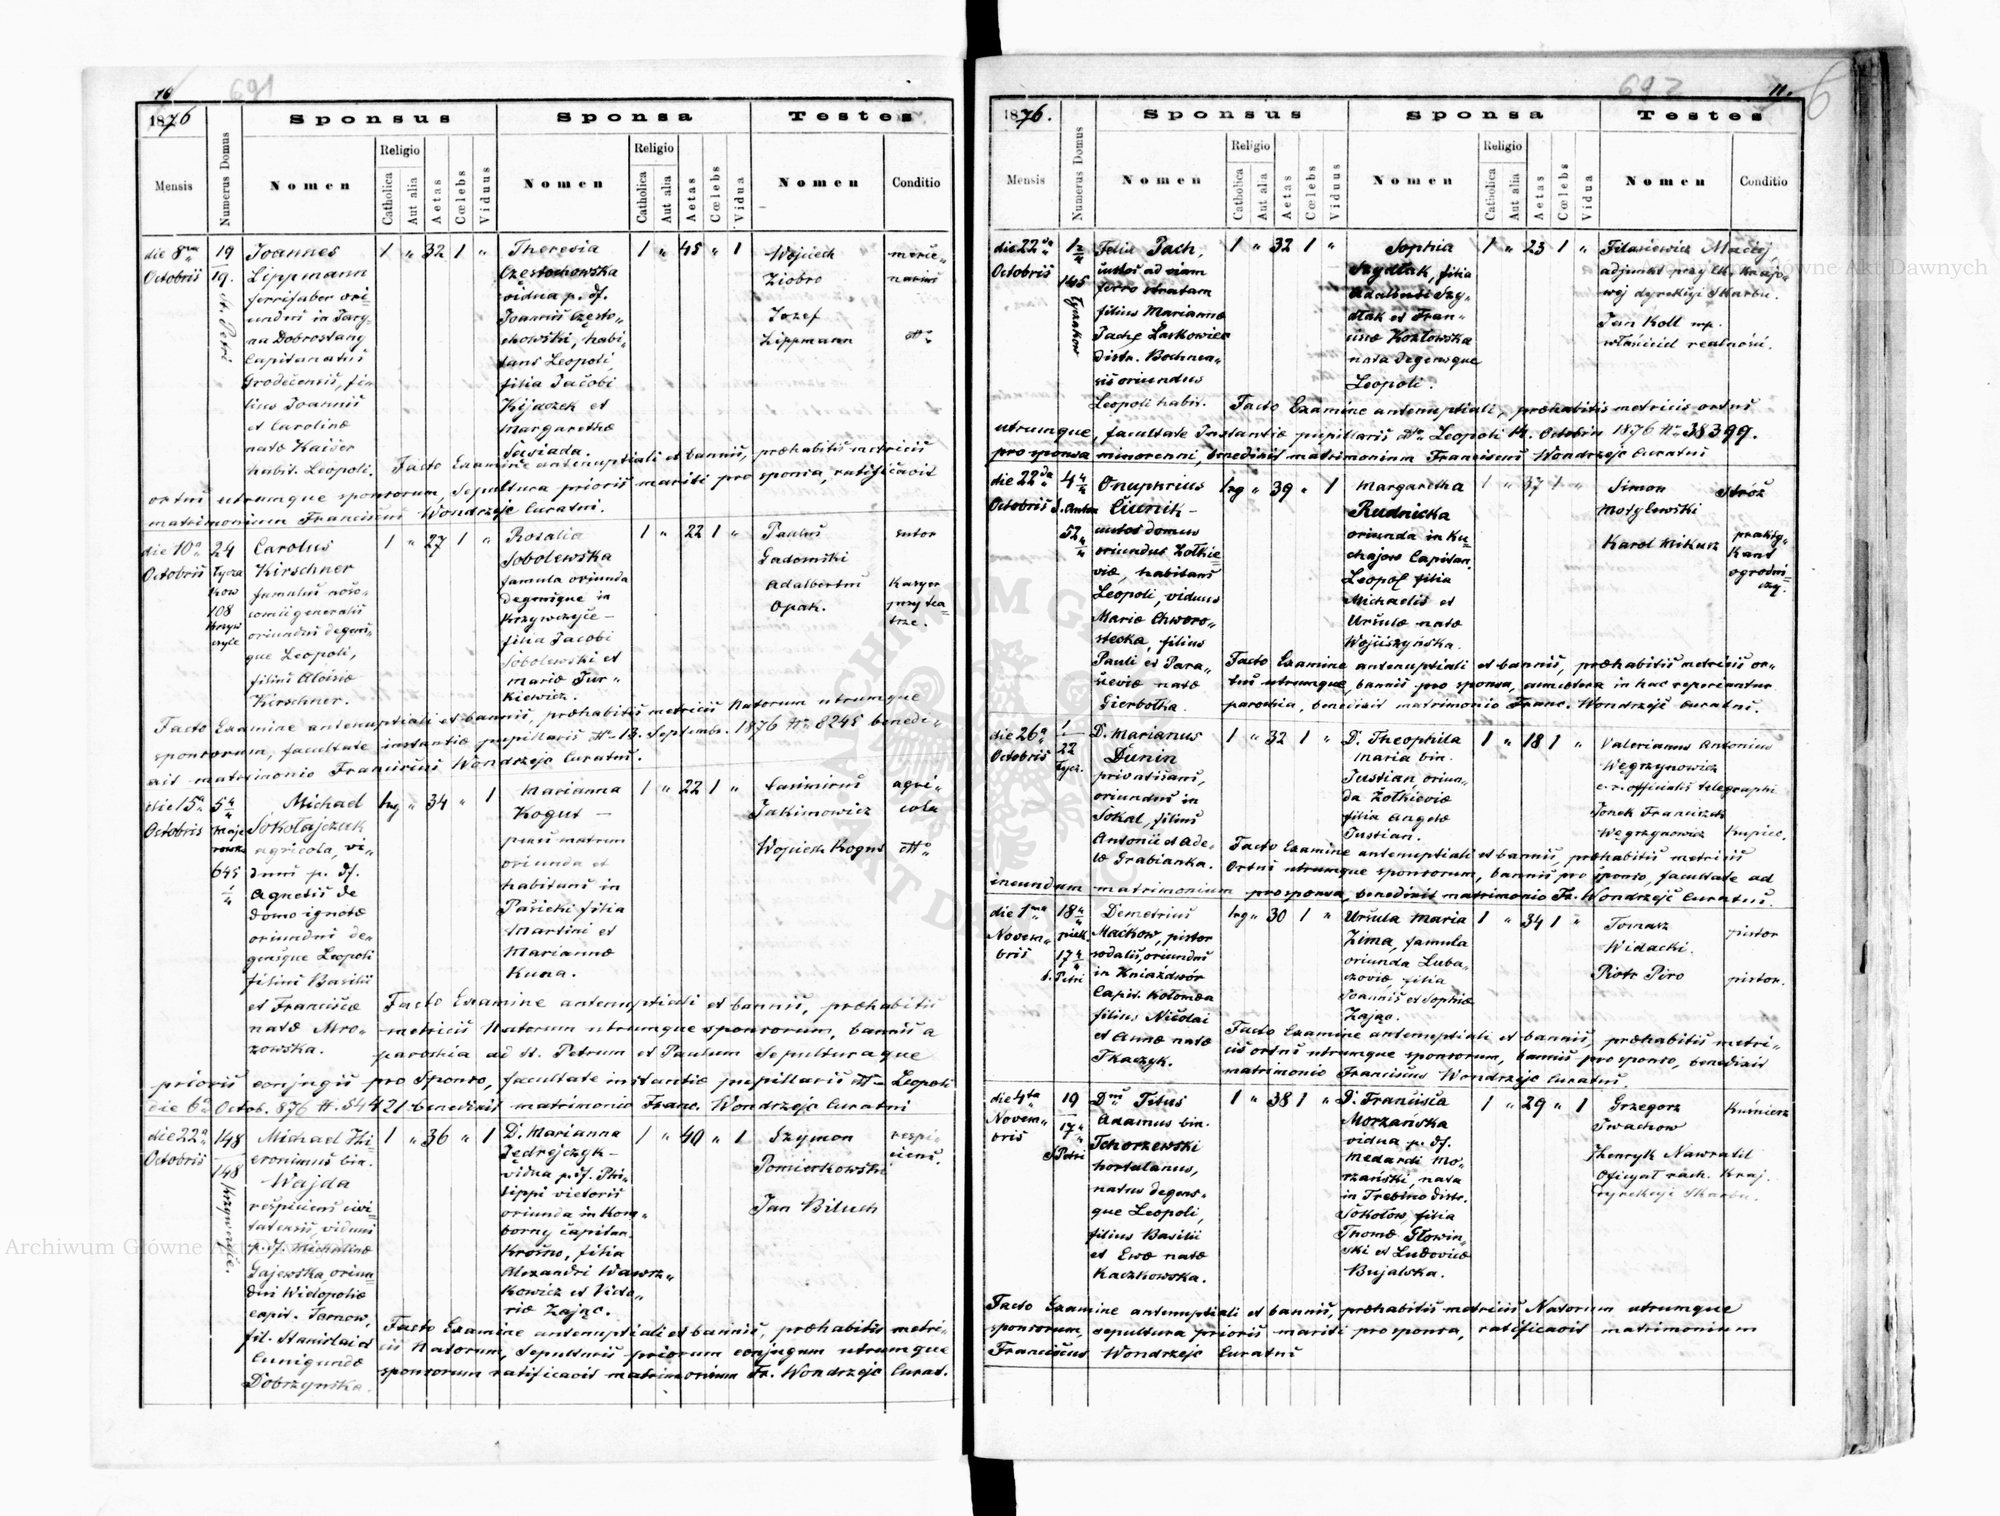 10
691
1876
Sponsus
Sponsa
Testes
Mensis
Numerus Domus
Nomen
Religio
Catholica
Aut alia
Aetas
Cœlebs
Viduus
Nomen
Religio
Catholica
Aut alia
Aetas
Cœlebs
Vidua
Nomen
Conditio
die 8va
Octobris
19
19.
St. Petri
Joannes
Lippmann
ferrifaber ori=
undus in
Dobrostany
Capitanatus
Grodecensis, fi=
lius Joannis
et Carolinæ
natæ Kaiser
habit. Leopoli.
1 „ 32 1 „
Theresia
Częstochowska
vidua p. df.
Joannis Często=
chowski, habi=
tans Leopoli,
filia Jacobi
Kijaczek et
Margarethæ
1 „ 45 „ 1
Wojciech
Ziobro
Jozef
Lippmann
merce=
narius
dtto
Facto Examine antenuptiali et bannis, præhabitis metricis
ortus utrumque sponsorum, sepultura prioris mariti pro sponsa, ratificavit
matrimonium Franciscus Wondrzejc Curatus.
die 10a
Octobris
24
Łycza
kow
108
Krzyw
czyce
Carolus
Kirschner
famulus noso=
comii generalis
oriundus degens=
que Leopoli,
filius Aloisiæ
Kirschner.
1 „ 27 1 „
Rosalia
Sobolewska
famula oriunda
degensque in
Krzywczyce=
filia Jacobi
Sobolewski et
Mariæ Jur=
kiewicz.
1 „ 22 1 „
Paulus
Gadomski
Adalbertus
Opak.
sutor
Kasyer
przy tea=
trze.
Facto Examine antenuptiali et bannis, præhabitis metricis Natorum utrumque
sponsorum, facultate instantiæ pupillaris dto 13. Septembr. 1876 No 8245 benedi=
xit matrimonio Franciscus Wondrzejc Curatus.
die 15a
Octobris
5 4/4
Maje
rowka
645
1/4
Michael
Sokołajczuk
agricola, vi=
duus p. df.
Agnetis de
domo ignotæ
oriundus de=
gensque Leopoli
filius Basilii
et Franciscæ
natæ Mro=
zowska.
1rg „ 34 „ 1
Marianna
Kogut –
penes matrem
oriunda et
habitans in
Pasieki filia
Martini et
Mariannæ
Kuna.
1 „ 22 1 „
Casimirus
Jakimowicz
Wojciech Kogut
agri=
cola
dtto
Facto Examine antenuptiali et bannis, præhabitis
metricis Natorum utrumque sponsorum, bannis a
parochia ad St. Petrum et Paulum sepulturaque
prioris conjugis pro sponso, facultate instantiæ pupillaris dto Leopoli
die 6a Octob. 876 N. 54421 benedixit matrimonio Franc. Wondrzejc Curatus
die 22a
Octobris
148
148
Krzywczyce.
Michael Hi=
eronimus bin.
Wajda
respiciens civi=
tatensis, viduus
p. df. Michalinæ
Gajewska, oriun=
dus Wielopolie
capit. Tarnow,
fil. Stanislai et
Cunigundæ
Dobrzynska.
1 „ 36 „ 1
D. Marianna
Jedrejczyk –
vidua p. df. Phi=
lippi victoris
oriunda in Kom=
borny capitan.
Krosno, filia
Alexandri Wawrz=
kowicz et Victo=
riæ Zając.
1 „ 40 „ 1
Szymon
Pomierkowski
Jan Biluch
respi=
ciens.
Facto Examine antenuptiali et bannis, præhabitis metri=
cis Natorum, sepulturis priorum conjugum utrumque
sponsorum ratificavit matrimonium Fr. Wondrzejc Curat.
692
11.
6
1876.
Sponsus
Sponsa
Testes
Mensis
Numerus Domus
Nomen
Religio
Catholica
Aut alia
Aetas
Cœlebs
Viduus
Nomen
Religio
Catholica
Aut alia
Aetas
Cœlebs
Vidua
Nomen
Conditio
die 22da
Octobris
1 2/4
145
Łyczakow
Felix Pach,
custos ad viam
ferro stratam
filius Mariannæ
Pach e Łazkowice
distr. Bochnea=
sis oriundus
Leopoli habit.
1 „ 32 1 „
Sophia
Szydłak, filia
Adalberti Szy=
dłak et Fran=
ciscæ Kozłowska
nata degensque
Leopoli.
1 „ 23 1 „
Filasiewicz Maciej
adjunkt przy ck. krajo=
wej dyrekcyi skarbu.
Jan Koll mp.
właściciel realności.
Facto Examine antenuptiali, præhabitis metricis ortus
utrumque, facultate Instantiæ pupillaris dto Leopoli 14. Octobris 1876 No 38399.
pro sponsa minorenni, benedixit matrimonium Franciscus Wondrzejc Curatus
die 22da
Octobris
4 4/4
S. Anton
52 4/4
Onuphrius
Ciurik –
custos domus
oriundus Żółkie
viæ, habitans
Leopoli, viduus
Mariæ Chworo=
stecka, filius
Pauli et Para=
sceviæ natæ
Gierbotka.
1rg „ 39 „ 1
Margaretha
Rudnicka
oriunda in Ku=
hajow Capitan.
Leopol filia
Michaelis et
Ursulæ natæ
Wojciszyńska.
1 „ 37 1 „
Simon
Motylewski
Karol Mikusz
Stróż
prakty=
kant
ogrodni=
czy.
Facto Examine antenuptiali et bannis, præhabitis metricis or=
tus utrumque, bannis pro sponsa, cum cetera in hac reperiantur
parochia, benedixit matrimonio Franc. Wondrzejc Curatus.
die 26a
Octobris
1
22
Łycz.
D. Marianus
Dunin
privatisans,
oriundus in
Sokal, filius
Antonii et Ade=
læ Grabianka.
1 „ 32 1 „
D. Theophila
Maria bin.
Justian, oriun=
da Żółkieviæ
filia Angelæ
Justian.
1 „ 18 1 „
Valerianus Antonius
Węgrzynowicz
c. r. officialis telegraphi
Jonek Franciszek
Węgrzynowicz
Kupiec.
Facto Examine antenuptiali et bannis, præhabitis metricis
Ortus utrumque sponsorum, bannis pro sponso, facultate ad
ineundum matrimonium pro sponsa, benedixit matrimonio Fr. Wondrzejc Curatus.
die 1ma
Novem=
bris
18 4/4
piek.
17 4/4
S. Petri
Demetrius
Maćkow, pistor
sodalis, oriundus
in Kniażdwór
Capit. Kołomea
filius Nicolai
et Annæ natæ
Tkaczyk.
1rg „ 30 1 „
Ursula Maria
Zima, famula
oriunda Luba=
czoviæ, filia
Joannis et Sophiæ
Zając.
1 „ 34 1 „
Tomasz
Widacki
Piotr Piro
pistor
pistor.
Facto Examine antenuptiali et bannis, præhabitis metri=
cis ortus utrumque sponsorum, bannis pro sponso, benedixit
matrimonio Franciscus Wondrzejc Curatus.
die 4ta
Novem=
bris
19
17
S Petri
Dnus Titus
Adamus bin.
Tchorzewski
hortulanus,
natus degens=
que Leopoli,
filius Basilii
et Evæ natæ
Kaczkowska.
1 „ 38 1 „
D. Francisca
Morzańska
vidua p. df.
Medardi Mo=
rzański, nata
in Trebino distr.
Sokołow filia
Thomæ Głowin=
ski et Ludovicæ
Bujalska.
1 „ 29 „ 1
Grzegorz
Iwachow
Henryk Nawratil
Oficyał rach. Kraj.
Dyrekcyi Skarbu.
Kuśnierz
Facto Examine antenuptiali et bannis, præhabitis metricis Natorum utrumque
sponsorum, sepultura prioris mariti pro sponsa, ratificavit matrimonium
Franciscus Wondrzejc Curatus
Archiwum Główne Akt Dawnych
Archiwum Główne Akt Dawnych
ARCHIWUM GŁÓWNE AKT DAWNYCH